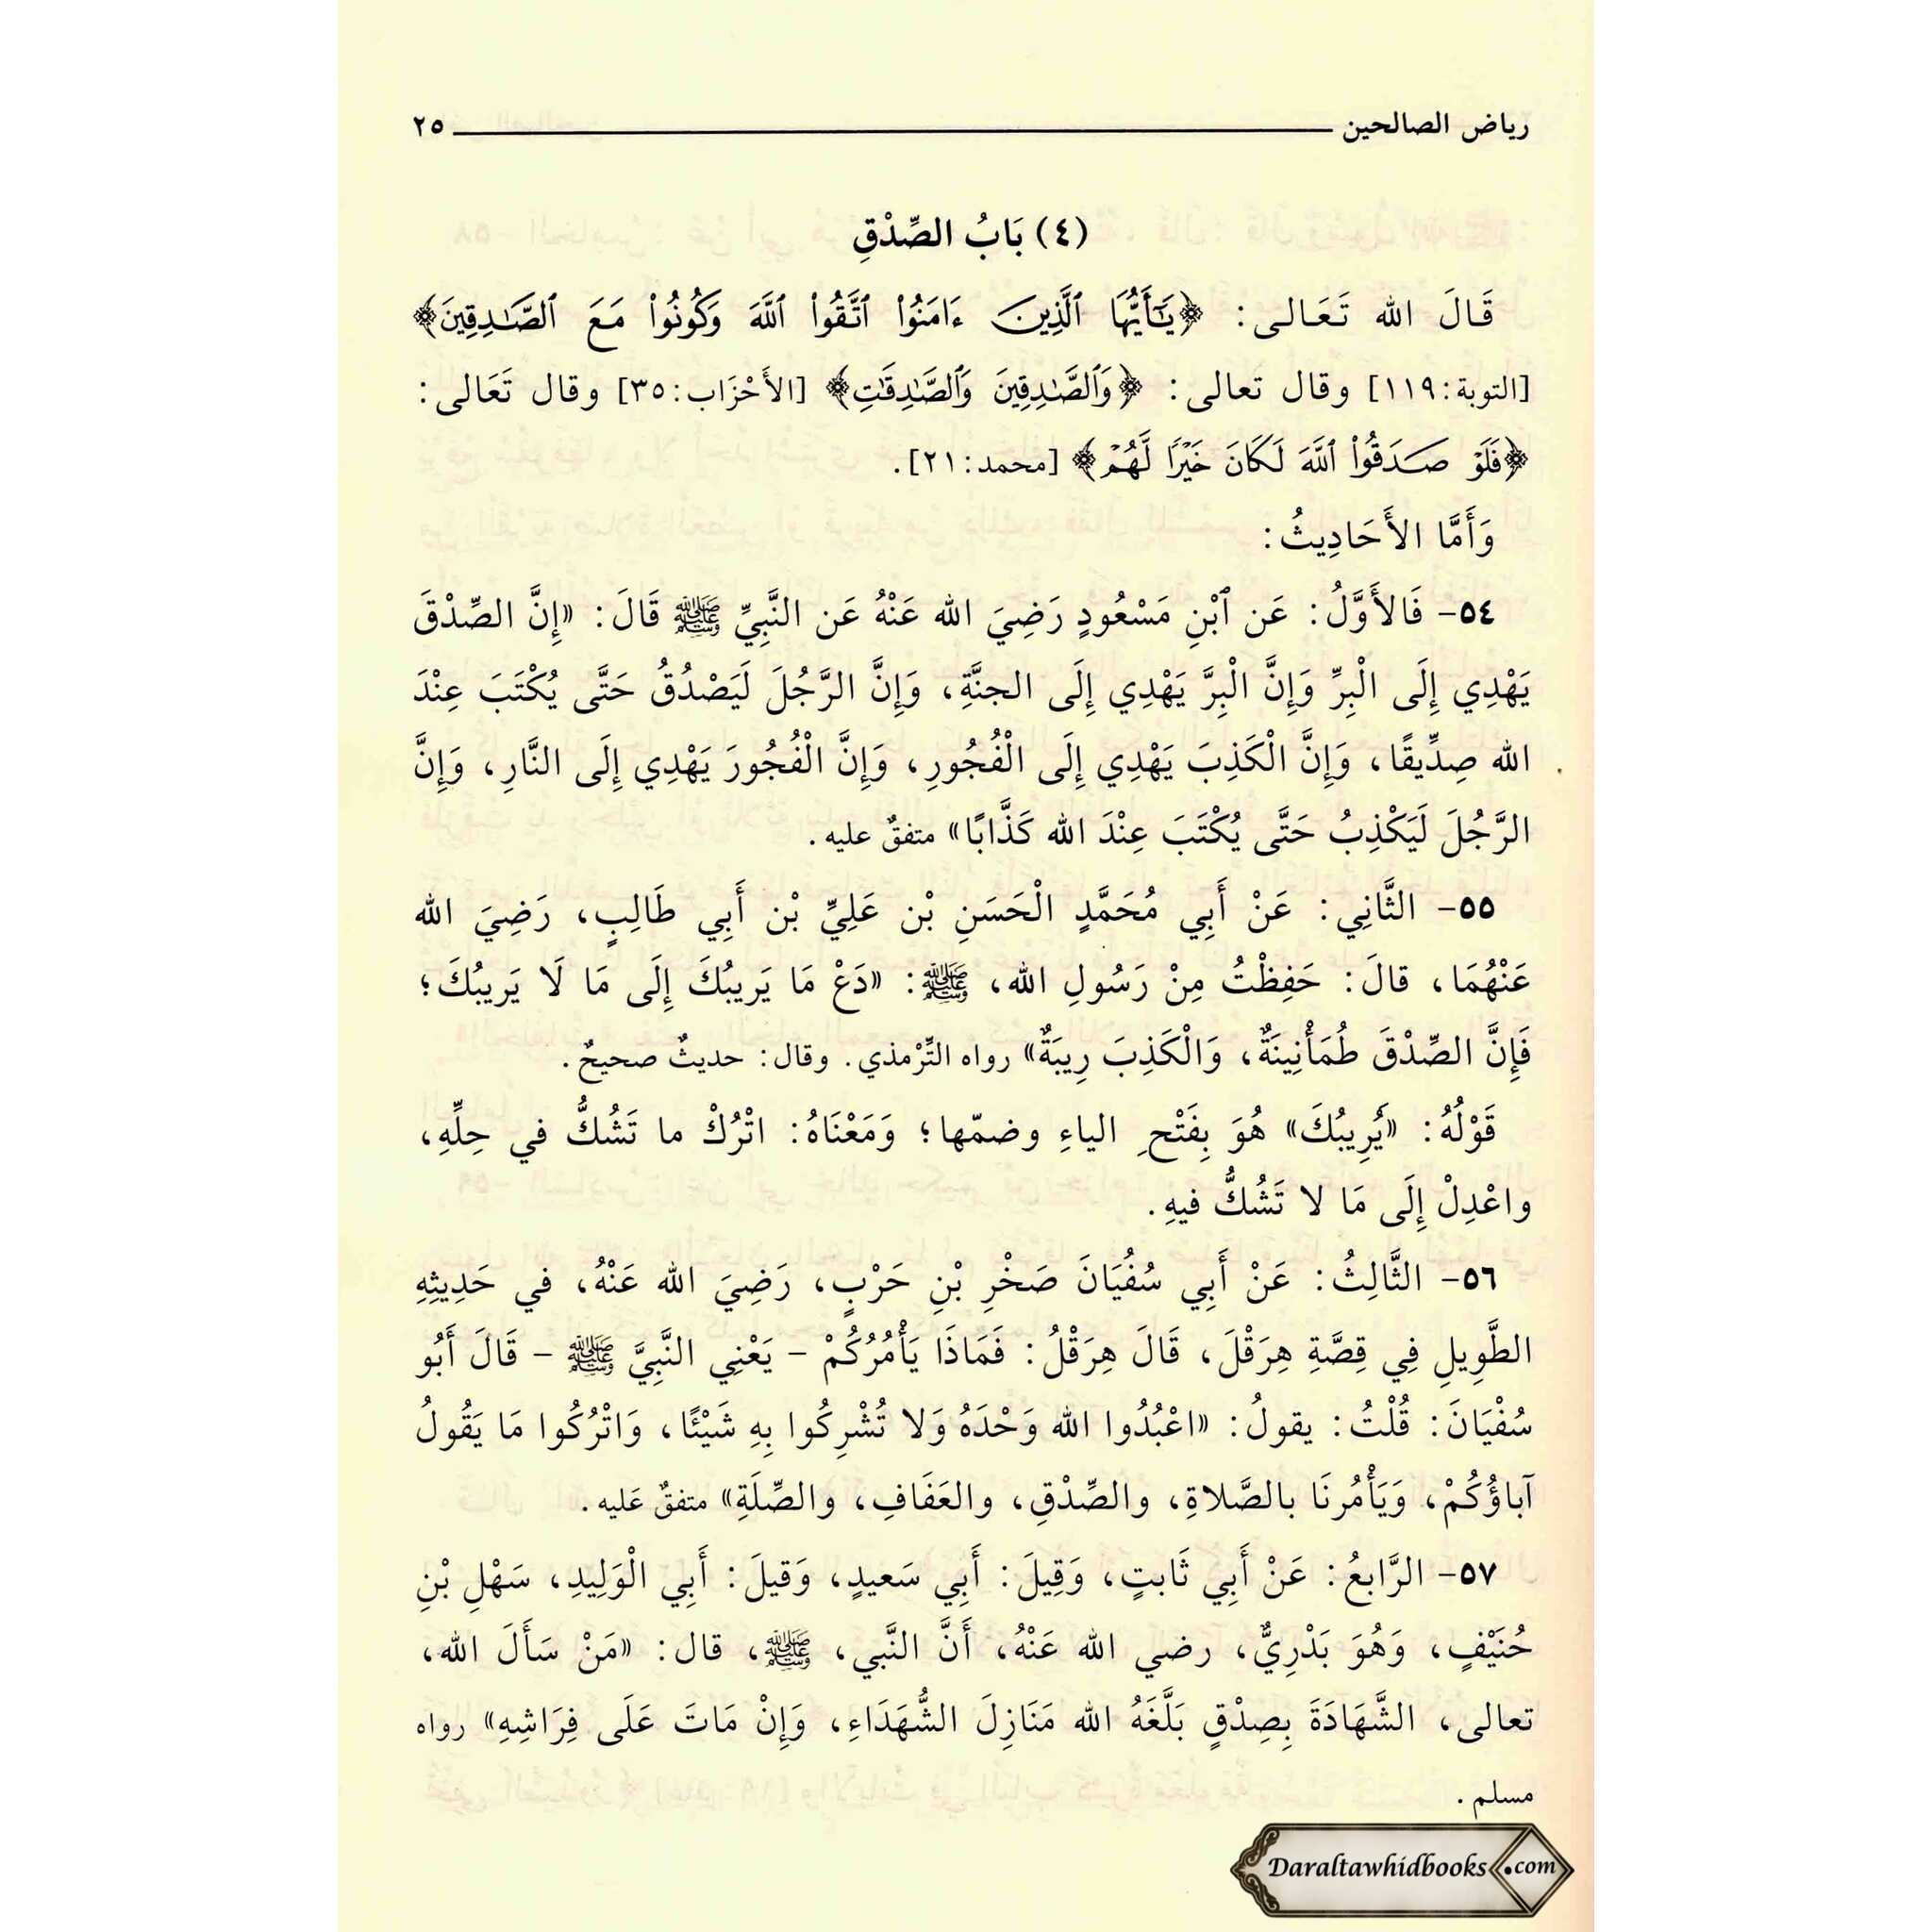 رياض الصالحين ٢٥
(٤) بَابُ الصِّدْقِ
قَالَ الله تَعَالى: ﴿يَٰٓأَيُّهَا ٱلَّذِينَ ءَامَنُوا۟ ٱتَّقُوا۟ ٱللَّهَ وَكُونُوا۟ مَعَ ٱلصَّٰدِقِينَ﴾
[التوبة: ١١٩] وقال تعالى: ﴿وَٱلصَّٰدِقِينَ وَٱلصَّٰدِقَٰتِ﴾ [الأَحْزَاب: ٣٥] وقال تَعَالى:
﴿فَلَوْ صَدَقُوا۟ ٱللَّهَ لَكَانَ خَيْرًا لَّهُمْ﴾ [محمد: ٢١].
وَأَمَّا الأَحَادِيثُ:
٥٤- فَالأَوَّلُ: عَن ٱبْنِ مَسْعُودٍ رَضِيَ الله عَنْهُ عَن النَّبِيِّ ﷺ قَالَ: «إِنَّ الصِّدْقَ
يَهْدِي إِلَى الْبِرِّ وَإِنَّ الْبِرَّ يَهْدِي إِلَى الجنَّةِ، وَإِنَّ الرَّجُلَ لَيَصْدُقُ حَتَّى يُكْتَبَ عِنْدَ
الله صِدِّيقًا، وَإِنَّ الْكَذِبَ يَهْدِي إِلَى الْفُجُورِ، وَإِنَّ الْفُجُورَ يَهْدِي إِلَى النَّارِ، وَإِنَّ
الرَّجُلَ لَيَكْذِبُ حَتَّى يُكْتَبَ عِنْدَ الله كَذَّابًا» متفقٌ عليه.
٥٥- الثَّانِي: عَنْ أَبِي مُحَمَّدٍ الْحَسَنِ بْن عَلِيِّ بْن أَبِي طَالِبٍ، رَضِيَ الله
عَنْهُمَا، قالَ: حَفِظْتُ مِنْ رَسُولِ الله، ﷺ: «دَعْ مَا يَريبُكَ إِلَى مَا لَا يَريبُكَ؛
فَإِنَّ الصِّدْقَ طُمَأْنِينَةٌ، وَالْكَذِبَ رِيبَةٌ» رواه التِّرْمذي. وقال: حديثٌ صحيحٌ.
قَوْلُهُ: «يُرِيبُكَ» هُوَ بِفَتْحِ الياءِ وضمّها؛ وَمَعْنَاهُ: اتْرُكْ ما تَشُكُّ في حِلِّهِ،
واعْدِلْ إِلَى مَا لا تَشُكُّ فيهِ.
٥٦- الثَّالِثُ: عَنْ أَبِي سُفْيَانَ صَخْرِ بْنِ حَرْبٍ، رَضِيَ الله عَنْهُ، في حَدِيثِهِ
الطَّوِيلِ فِي قِصَّةِ هِرَقْلَ، قَالَ هِرَقْلُ: فَمَاذَا يَأْمُرُكُمْ - يَعْنِي النَّبِيَّ ﷺ - قَالَ أَبُو
سُفْيَانَ: قُلْتُ: يقولُ: «اعْبُدُوا الله وَحْدَهُ وَلا تُشْرِكُوا بِهِ شَيْئًا، وَاتْرُكُوا مَا يَقُولُ
آباؤُكُمْ، وَيَأْمُرنَا بالصَّلاةِ، والصِّدْقِ، والعَفَافِ، والصِّلَةِ» متفقٌ عَليه.
٥٧- الرَّابعُ: عَنْ أَبِي ثَابتٍ، وَقِيلَ: أَبِي سَعيدٍ، وَقيلَ: أَبِي الْوَلِيدِ، سَهْلِ بْنِ
حُنَيْفٍ، وَهُوَ بَدْرِيٌّ، رضي الله عَنْهُ، أَنَّ النَّبي، ﷺ، قال: «مَنْ سَأَلَ الله،
تعالى، الشَّهَادَةَ بِصِدْقٍ بَلَّغَهُ الله مَنَازِلَ الشُّهَدَاءِ، وَإِنْ مَاتَ عَلَى فِرَاشِهِ» رواه
مسلم.
Daraltawhidbooks.com